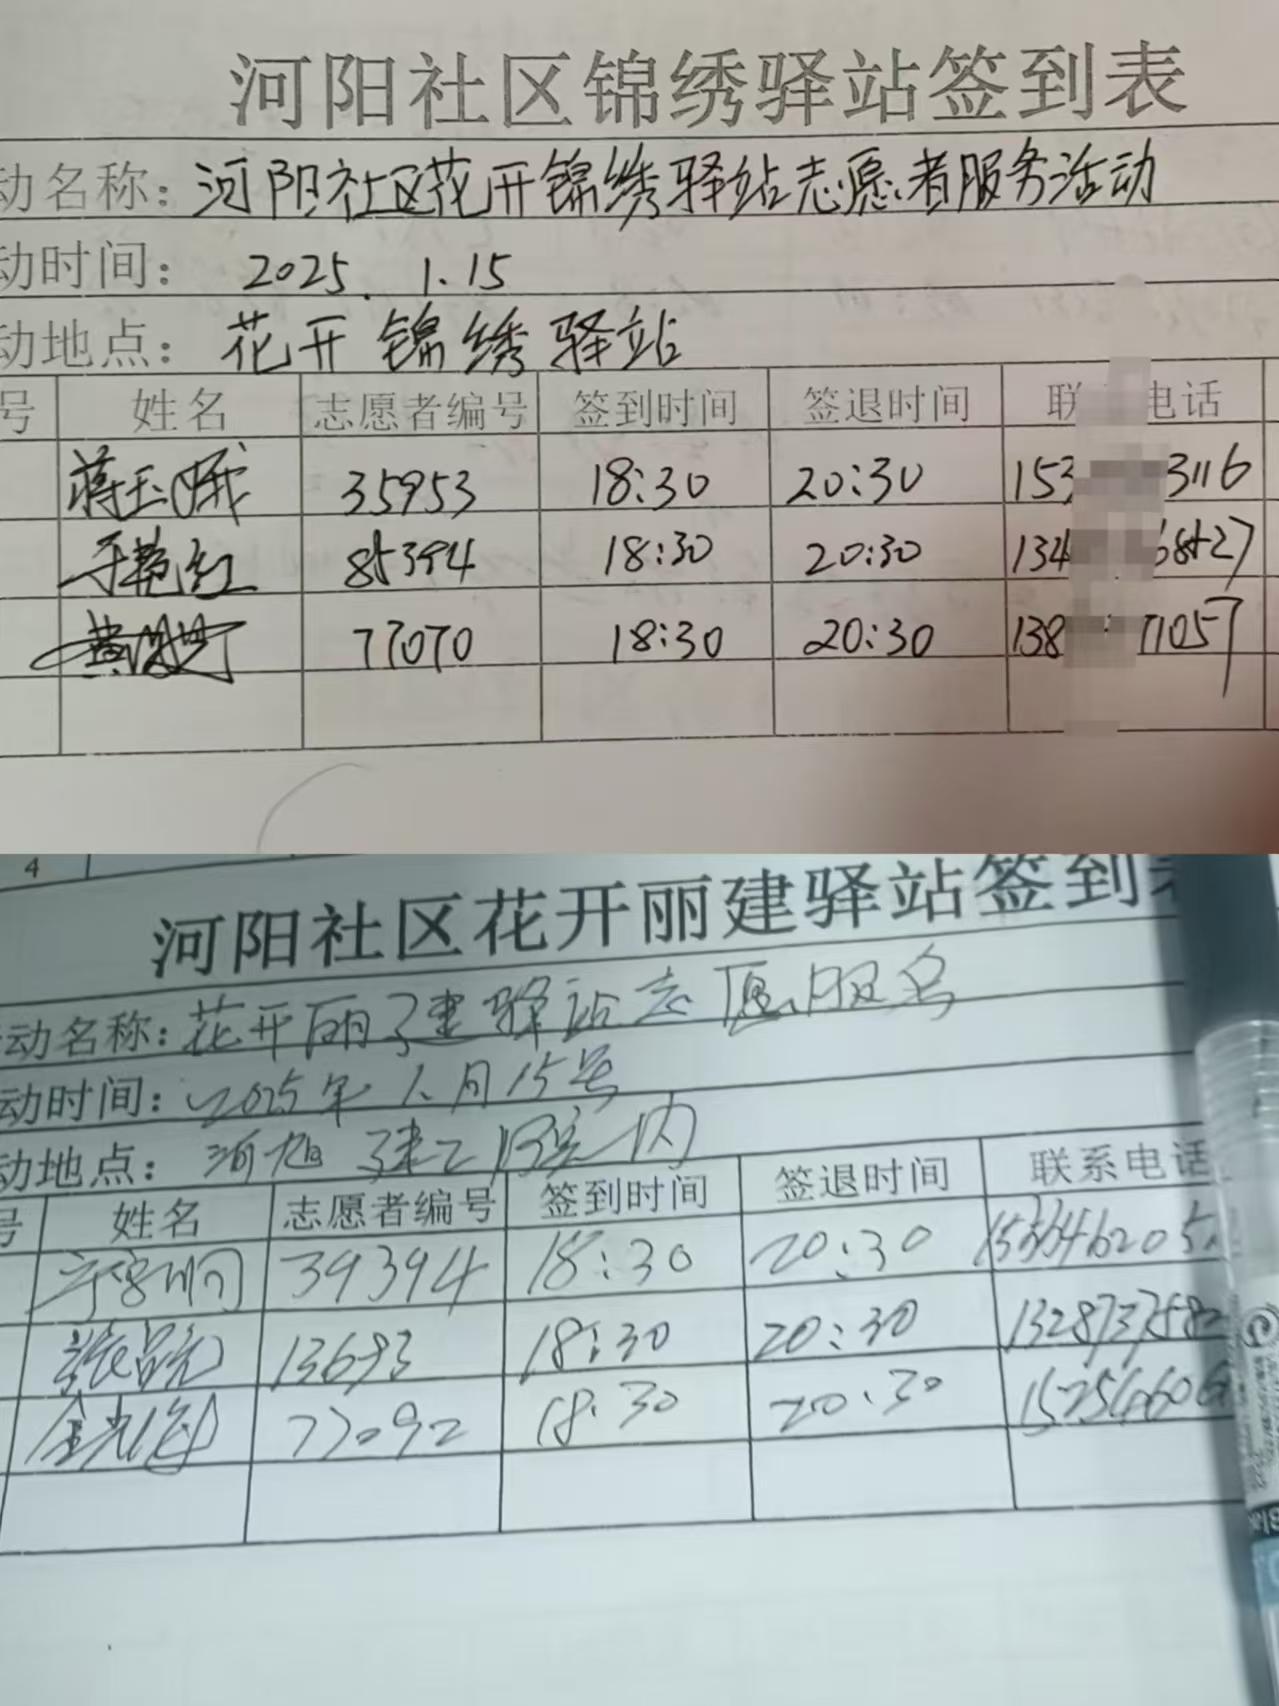 河阳社区锦绣驿站签到表
动名称：河阳社区花开锦绣驿站志愿者服务活动
动时间： 2025. 1.15
动地点： 花开锦绣驿站
号 姓名 志愿者编号 签到时间 签退时间 联 电话
蒋玉娥 35953 18:30 20:30 153 3116
于艳红 85394 18:30 20:30 134 68527
黄 77070 18:30 20:30 138 71057
4
河阳社区花开丽建驿站签到
动名称：花开丽建驿站志愿服务
动时间：2025年1月15号
动地点： 河旭建工 院内
号 姓名 志愿者编号 签到时间 签退时间 联系电话
39394 18:30 20:30
张 13693 18:30 20:30
金光 77092 18:30 20:30